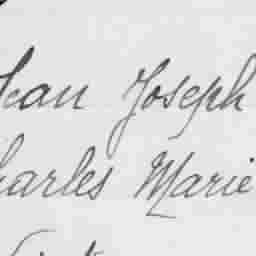 Jean Joseph
Charles Marie